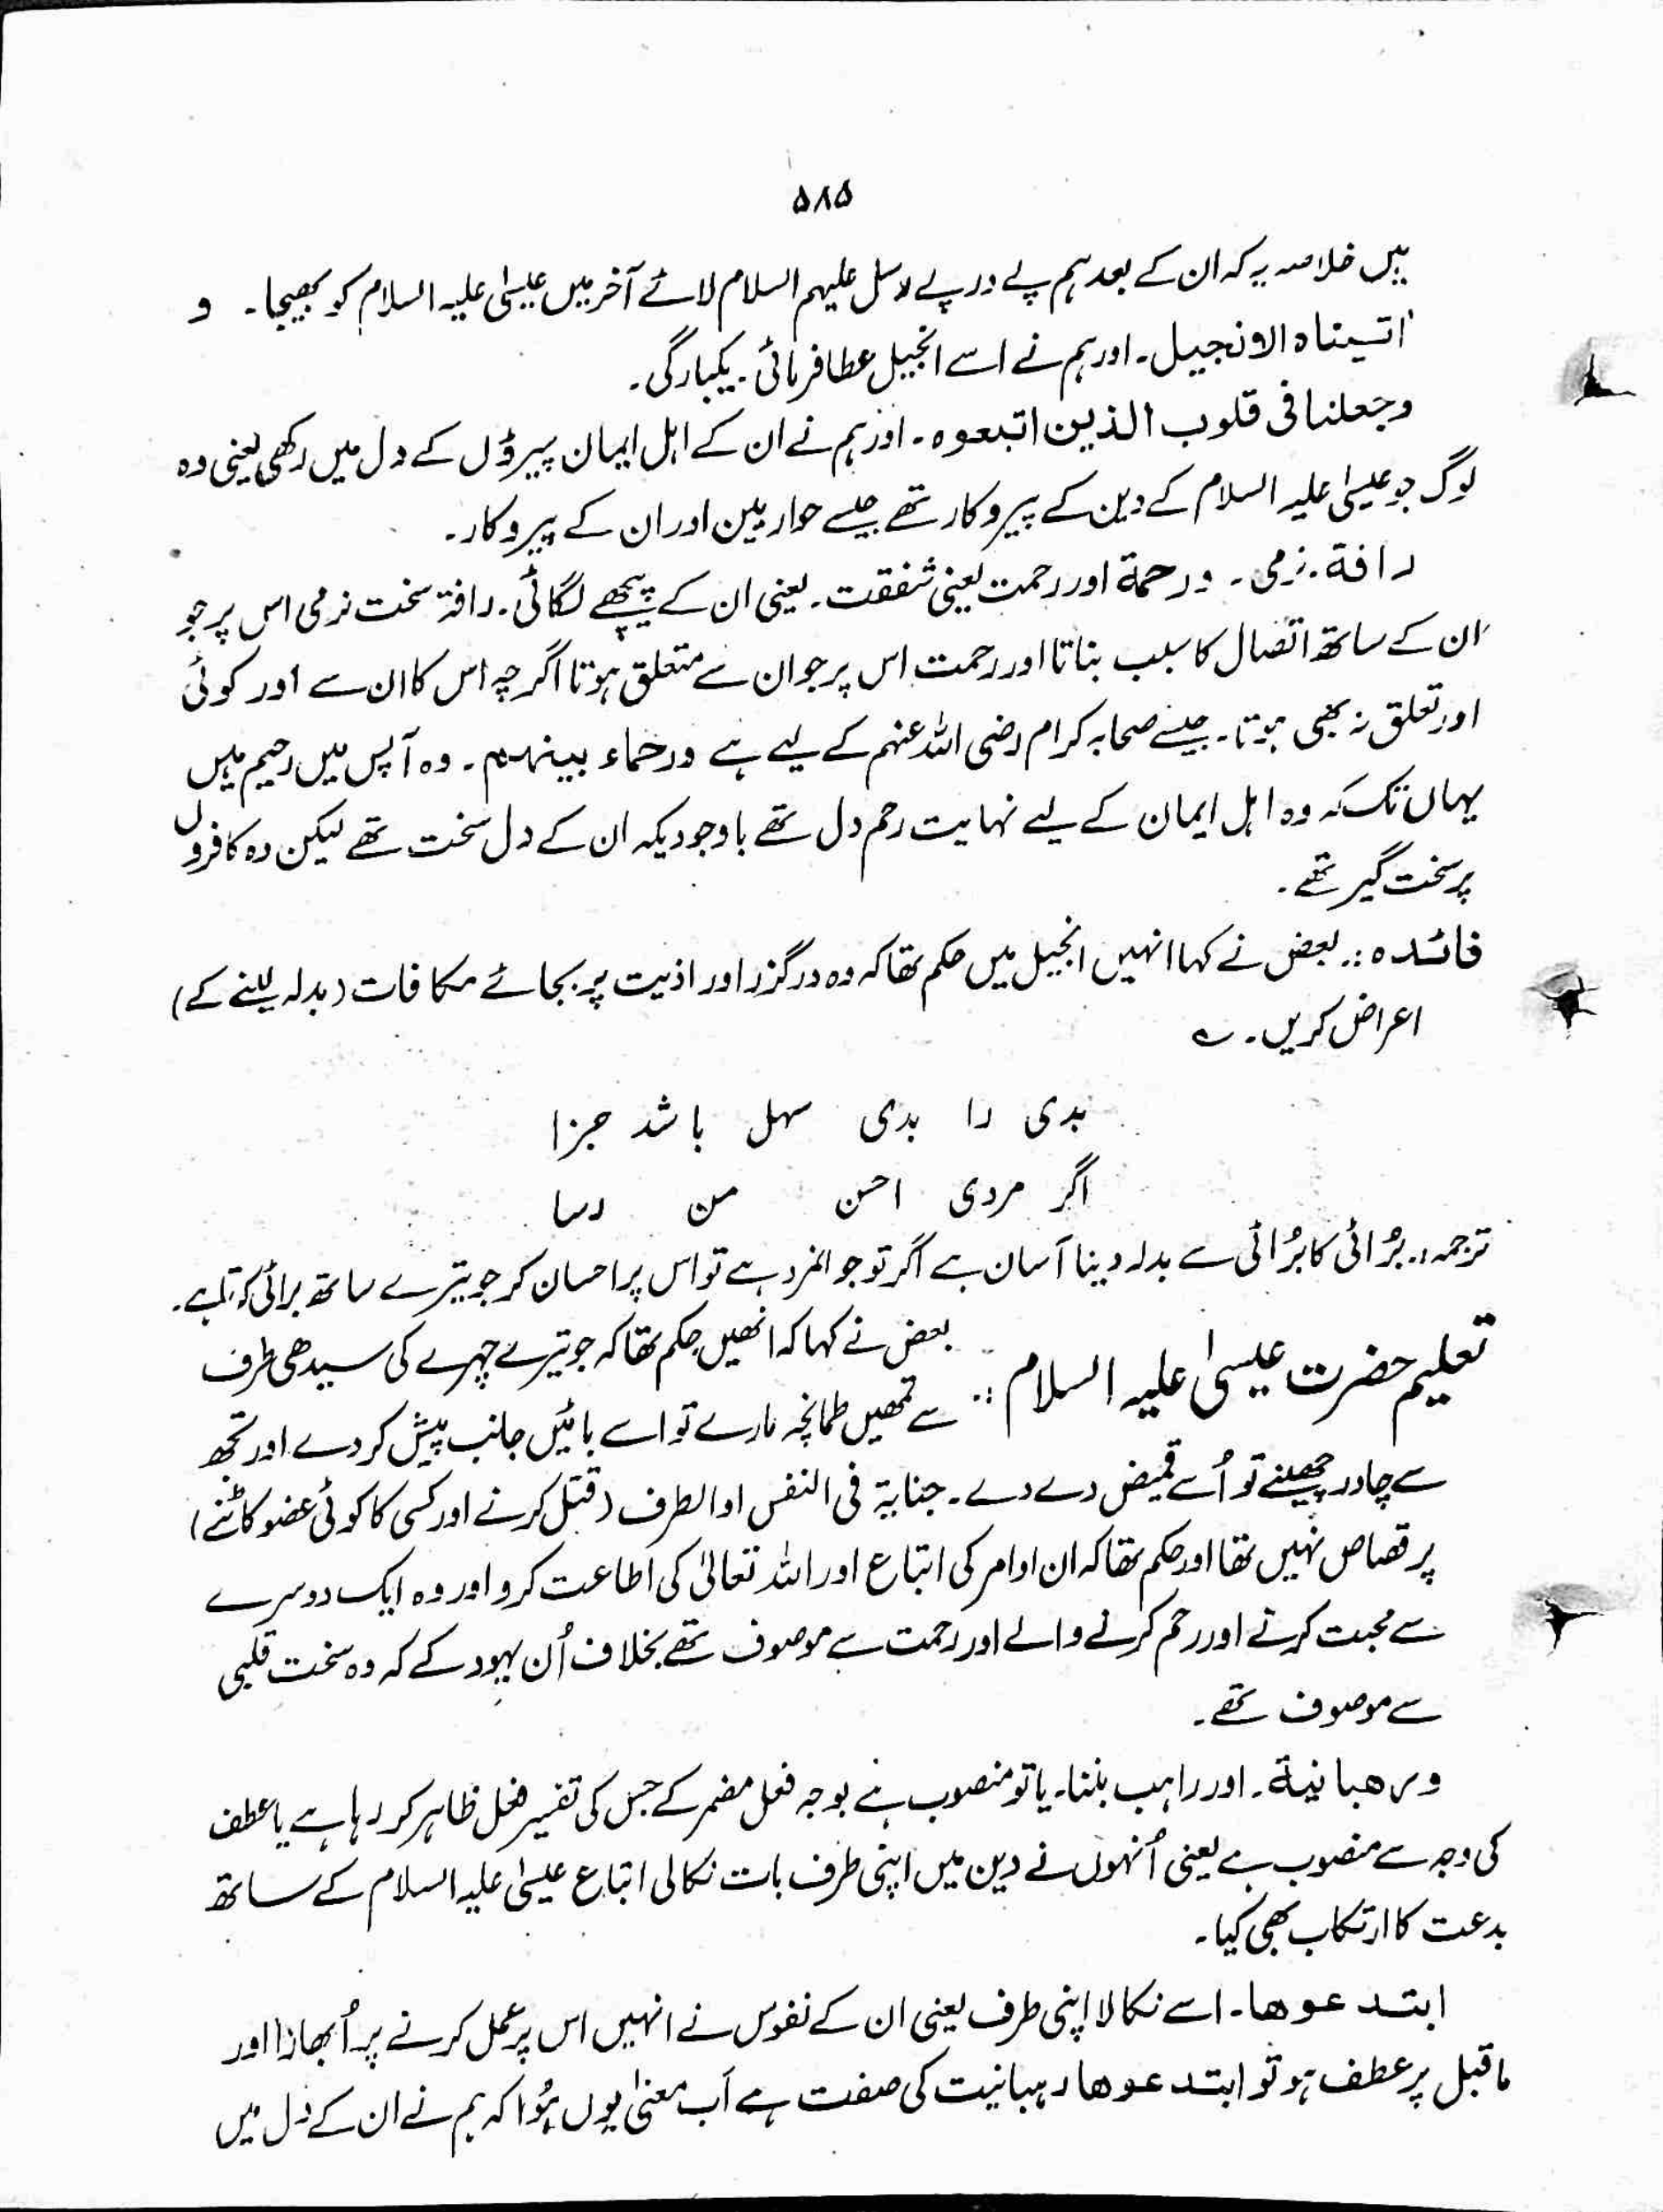 ۵۸۵
ہیں خلاصہ یہ کہ ان کے بعد ہم پے در پے رسل علیہم السلام لائے آخر میں عیسٰی علیہ السلام کو بھیجا۔ و
اتیناہ الانجیل۔ اور ہم نے اسے انجیل عطا فرمائی۔ یکبارگی۔
وجعلنا فی قلوب الذین اتبعوہ۔ اور ہم نے ان کے اہل ایمان پیروؤں کے دل میں رکھی یعنی وہ
لوگ جو عیسیٰ علیہ السلام کے دین کے پیروکار تھے جیسے حواریین اور ان کے پیروکار۔
رافة۔ نرمی۔ ورحمة اور رحمت یعنی شفقت۔ یعنی ان کے پیچھے لگائی۔ رافۃ سخت نرمی اس پر جو
ان کے ساتھ اتصال کا سبب بناتا اور رحمت اس پر جو ان سے متعلق ہوتا اگرچہ اس کا ان سے اور کوئی
اور تعلق نہ بھی ہوتا۔ جیسے صحابہ کرام رضی اللہ عنہم کے لیے ہے ورحماء بینہم۔ وہ آپس میں رحیم ہیں
یہاں تک کہ وہ اہل ایمان کے لیے نہایت رحم دل تھے باوجودیکہ ان کے دل سخت تھے لیکن وہ کافروں
پر سخت گیر تھے۔
فائدہ:۔ بعض نے کہا انہیں انجیل میں حکم تھا کہ وہ درگزر اور اذیت پر بجائے مکافات (بدلہ لینے کے)
اعراض کریں۔ ؎
بدی را بدی سہل باشد جزا
اگر مردی احسن من اسا
ترجمہ:۔ بُرائی کا بُرائی سے بدلہ دینا آسان ہے اگر تو جوانمرد ہے تو اس پر احسان کر جو تیرے ساتھ برائی کرتا ہے۔
تعلیم حضرت عیسیٰ علیہ السلام:۔ بعض نے کہا کہ انھیں حکم تھا کہ جو تیرے چہرے کی سیدھی طرف
سے تمھیں طمانچہ مارے تو اسے بائیں جانب پیش کر دے اور تجھ
سے چادر چھینے تو اُسے قمیض دے دے۔ جنایۃ فی النفس اوالطرف (قتل کرنے اور کسی کا کوئی عضو کاٹنے)
پر قصاص نہیں تھا اور حکم تھا کہ ان اوامر کی اتباع اور اللہ تعالیٰ کی اطاعت کرو اور وہ ایک دوسرے
سے محبت کرتے اور رحم کرنے والے اور رحمت سے موصوف تھے بخلاف اُن یہود کے کہ وہ سخت قلبی
سے موصوف تھے۔
ورھبانیة۔ اور راہب بننا۔ یا تو منصوب ہے بوجہ فعل مضمر کے جس کی تفسیر فعل ظاہر کر رہا ہے یا عطف
کی وجہ سے منصوب ہے یعنی اُنہوں نے دین میں اپنی طرف بات نکالی اتباع عیسیٰ علیہ السلام کے ساتھ
بدعت کا ارتکاب بھی کیا۔
ابتدعوھا۔ اسے نکالا اپنی طرف یعنی ان کے نفوس نے انہیں اس پر عمل کرنے پر اُبھارا اور
ماقبل پر عطف ہو تو ابتدعوھا رہبانیت کی صفت ہے اَب معنیٰ یوں ہُوا کہ ہم نے ان کے دل میں